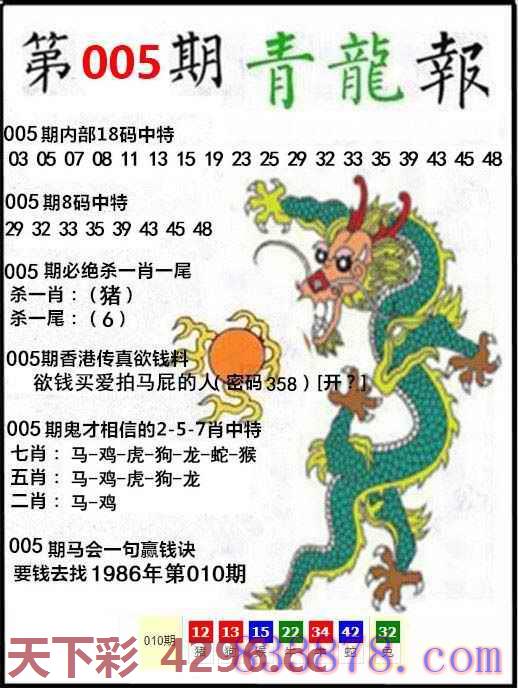 第005期青龍報
005期内部18码中特
03 05 07 08 11 13 15 19 23 25 29 32 33 35 39 43 45 48
005期8码中特
29 32 33 35 39 43 45 48
005期必绝杀一肖一尾
杀一肖：（猪）
杀一尾：（6）
005期香港传真欲钱料
欲钱买爱拍马屁的人（密码358）[开？]
005期鬼才相信的2-5-7肖中特
七肖：马-鸡-虎-狗-龙-蛇-猴
五肖：马-鸡-虎-狗-龙
二肖：马-鸡
005期马会一句赢钱诀
要钱去找1986年第010期
010期 12 13 15 22 34 42 32
猪 蛇 兔
天下彩 4296.cc
838878.com